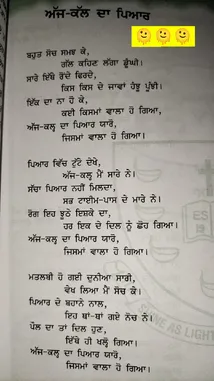 ਅੱਜ-ਕੱਲ ਦਾ ਪਿਆਰ
ਬਹੁਤ ਸੋਚ ਸਮਝ ਕੇ,
ਗੱਲ ਕਹਿਣ ਲੱਗਾ ਡੂੰਘੀ।
ਸਾਰੇ ਇੱਥੇ ਰੋਂਦੇ ਫਿਰਦੇ,
ਕਿਸ ਕਿਸ ਦੇ ਜਾਵਾਂ ਹੰਝੂ ਪੂੰਝੀ।
ਇੱਕ ਦਾ ਨਾ ਹੋ ਕੇ,
ਕਈ ਕਿਸਮਾਂ ਵਾਲਾ ਹੋ ਗਿਆ,
ਅੱਜ-ਕਲ੍ਹ ਦਾ ਪਿਆਰ ਯਾਰੋ,
ਜਿਸਮਾਂ ਵਾਲਾ ਹੋ ਗਿਆ।
ਪਿਆਰ ਵਿੱਚ ਟੁੱਟੇ ਦੇਖੇ,
ਅੱਜ-ਕਲ੍ਹ ਮੈਂ ਸਾਰੇ ਨੇ।
ਸੱਚਾ ਪਿਆਰ ਨਹੀਂ ਮਿਲਦਾ,
ਸਭ ਟਾਈਮ-ਪਾਸ ਦੇ ਮਾਰੇ ਨੇ।
ਰੋਗ ਇਹ ਝੂਠੇ ਇਸ਼ਕੇ ਦਾ,
ਹਰ ਇਕ ਦੇ ਦਿਲ ਨੂੰ ਛੋਹ ਗਿਆ।
ਅੱਜ-ਕਲ੍ਹ ਦਾ ਪਿਆਰ ਯਾਰੋ,
ਜਿਸਮਾਂ ਵਾਲਾ ਹੋ ਗਿਆ।
ਮਤਲਬੀ ਹੋ ਗਈ ਦੁਨੀਆ ਸਾਡੀ,
ਵੇਖ ਲਿਆ ਮੈਂ ਸੋਚ ਕੇ।
ਪਿਆਰ ਦੇ ਬਹਾਨੇ ਨਾਲ,
ਇਹ ਥਾਂ-ਥਾਂ ਗਏ ਨੋਚ ਨੇ।
ਪੌਲ ਦਾ ਤਾਂ ਦਿਲ ਹੁਣ,
ਇੱਥੇ ਹੀ ਖਲ੍ਹੋ ਗਿਆ।
ਅੱਜ-ਕਲ੍ਹ ਦਾ ਪਿਆਰ ਯਾਰੋ,
ਜਿਸਮਾਂ ਵਾਲਾ ਹੋ ਗਿਆ।
ES
SERVE AS LIGHT